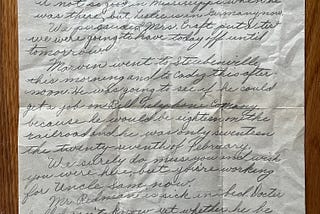 it not so good in Mississippi when he
was there, but he is in Germany now.
We
we were going to have today off until
tomorrow.
Marvin went to Steubenville
this morning and to Cadiz this after
noon. He was going to see if he could
get a job on Bell Telephone Company
because he would be eighteen on the
railroad and he was only seventeen
the twenty-seventh of February.
We surely do miss you and wish
you were here but you're working
for Uncle Sam now.
Mr. Redman is sick in bed
know yet whether he